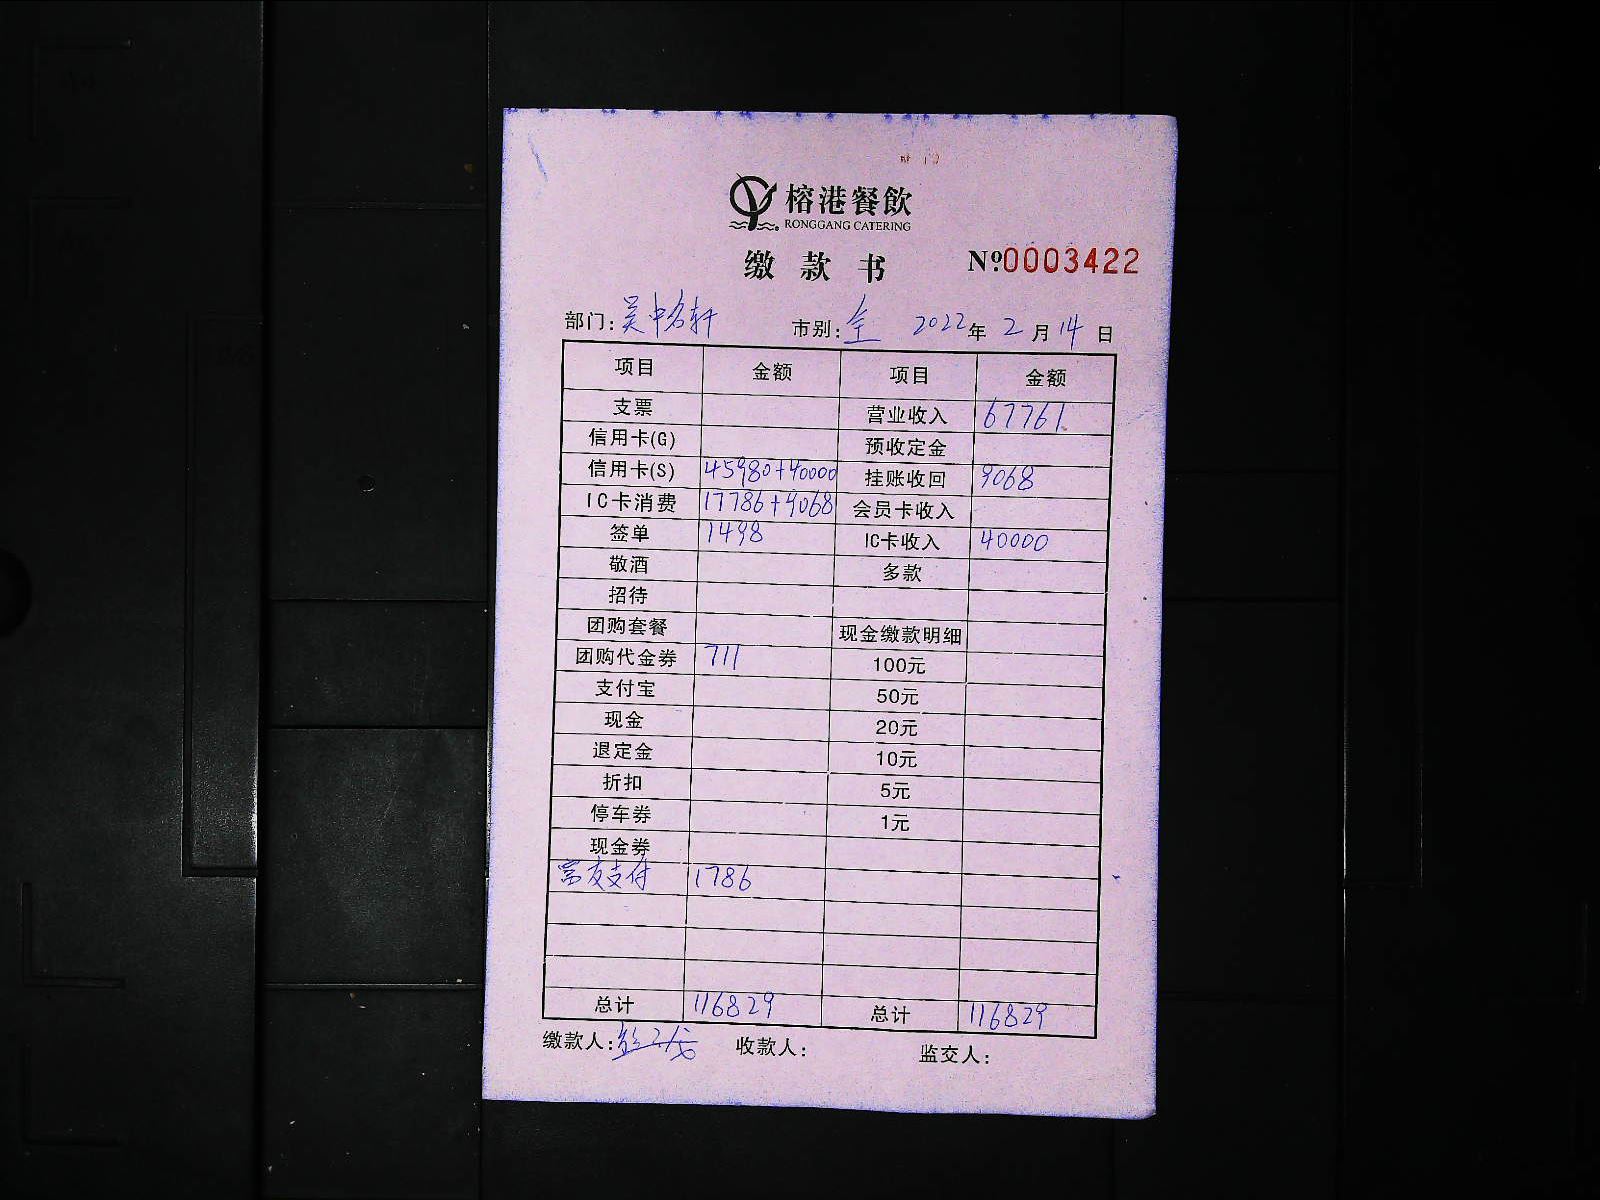 榕港餐飲
RONGGANG CATERING
缴款书 Nº0003422
部门: 吴中名轩 市别: 全 2022年 2月14日
项目 金额 项目 金额
支票 营业收入 67761
信用卡(G) 预收定金
信用卡(S) 45980+40000 挂账收回 9068
IC卡消费 17786+9068 会员卡收入
签单 1498 IC卡收入 40000
敬酒 多款
招待
团购套餐 现金缴款明细
团购代金券 711 100元
支付宝 50元
现金 20元
退定金 10元
折扣 5元
停车券 1元
现金券
支付 1786
总计 116829 总计 116829
缴款人: 收款人: 监交人: